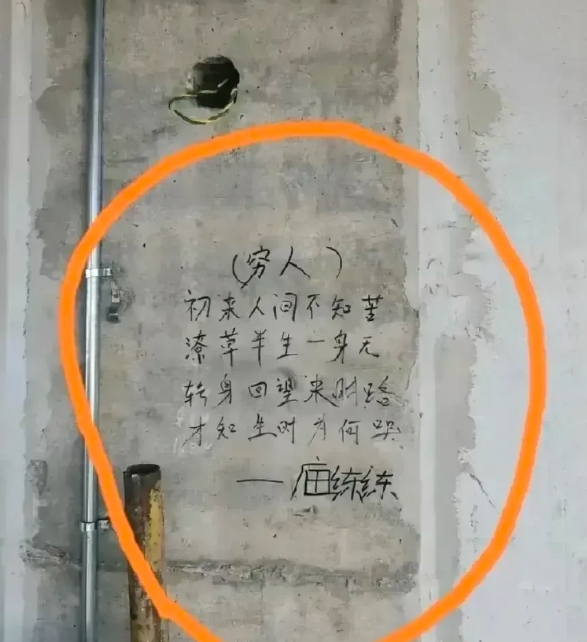 (穷人)
初来人间不知苦
潦草半生一身无
转身回望来时路
才知生时为何哭
——庙练练